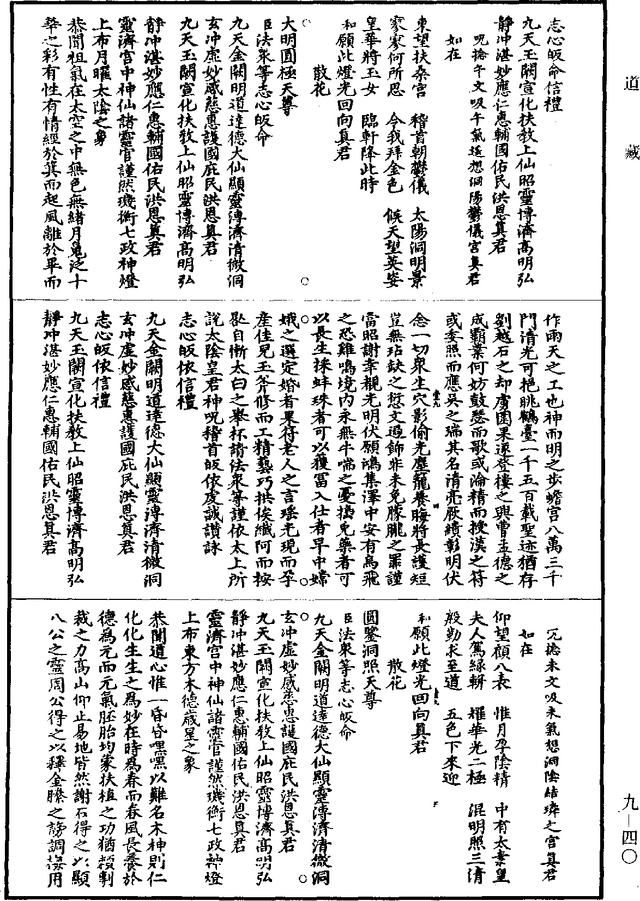 道藏
志心皈命信禮
九天玉闕宣化扶敎上仙昭靈博濟高明弘
靜冲湛妙應仁惠輔國佑民洪恩真君
如在
東望扶桑宮　稽首朝鬱儀　太陽洞明景
寥寥何所思　令我拜金色　候天望英姿
皇華將玉女　臨軒降此時
和願此燈光回向真君
散花
大明圓極天尊
臣法衆等志心皈命
九天金闕明道達德大仙顯靈溥濟清微洞
玄冲虛妙感慈惠護國庇民洪恩真君
九天玉闕宣化扶敎上仙昭靈博濟高明弘
靜冲湛妙應仁惠輔國佑民洪恩真君
靈濟宮中神仙諸靈官謹然璣衡七政神燈
上布月曜太陰之象
恭聞祖氣在太空之中無色無緒月鬼泛十
華之彩有性有情經於箕而起風離於畢而
作雨天之工也神而明之步蟾宮八萬三千
門清光可挹眺鶴臺一千五百載聖迹猶存
劉越石之却虜圍果遂登樓之興曹孟德之
成霸業何妨鼓瑟而歌或淪精而授漢之符
或委照而應吳之瑞其名清亮厥績彰明伏
念一切衆生穴影偷光塵籠養晦將長護短
豈無玷缺之愆文過飾非未免朦朧之罪謹
當昭謝幸覩光明伏願鴻集澤中安有烏飛
之恐雞鳴境内永無牛喘之憂擣兔藥者可
以長生採蚌珠者可以獲富入仕者早中嫦
娥之選定婚者果符老人之言瑤光現而孕
産佳兒玉斧修而工精藝巧拱俟纖阿而按
馭自慚太白之舉杯請法衆等謹依太上所
說太陰皇君神呪稽首皈依虔誠讃詠
志心皈依信禮
九天金闕明道達德大仙顯靈溥濟清微洞
玄冲虛妙感慈惠護國庇民洪恩真君
志心皈依信禮
九天玉闕宣化扶敎上仙昭靈博濟高明弘
靜冲湛妙應仁惠輔國佑民洪恩真君
如在
仰望顧八表　惟月孕陰精　中有太素皇
夫人駕綠軿　耀華光二極　混明照三清
殷勤求至道　五色下來迎
和願此燈光回向真君
散花
圓鑒洞照天尊
臣法衆等志心皈命
九天金闕明道達德大仙顯靈溥濟清微洞
玄冲虛妙感慈惠護國庇民洪恩真君
九天玉闕宣化扶敎上仙昭靈博濟高明弘
靜冲湛妙應仁惠輔國佑民洪恩真君
靈濟宮中神仙諸靈官謹然璣衡七政神燈
上布東方木德歲星之象
恭聞道心惟一昏昏嘿嘿以難名木神則仁
化化生生之爲妙在時爲春而春風長養於
德爲元而元氣胚胎均蒙扶植之功猶穀
裁之力高山仰止易地皆然謝石得之以顯
八公之靈周公得之以釋金縢之謗調梅用
九—四〇